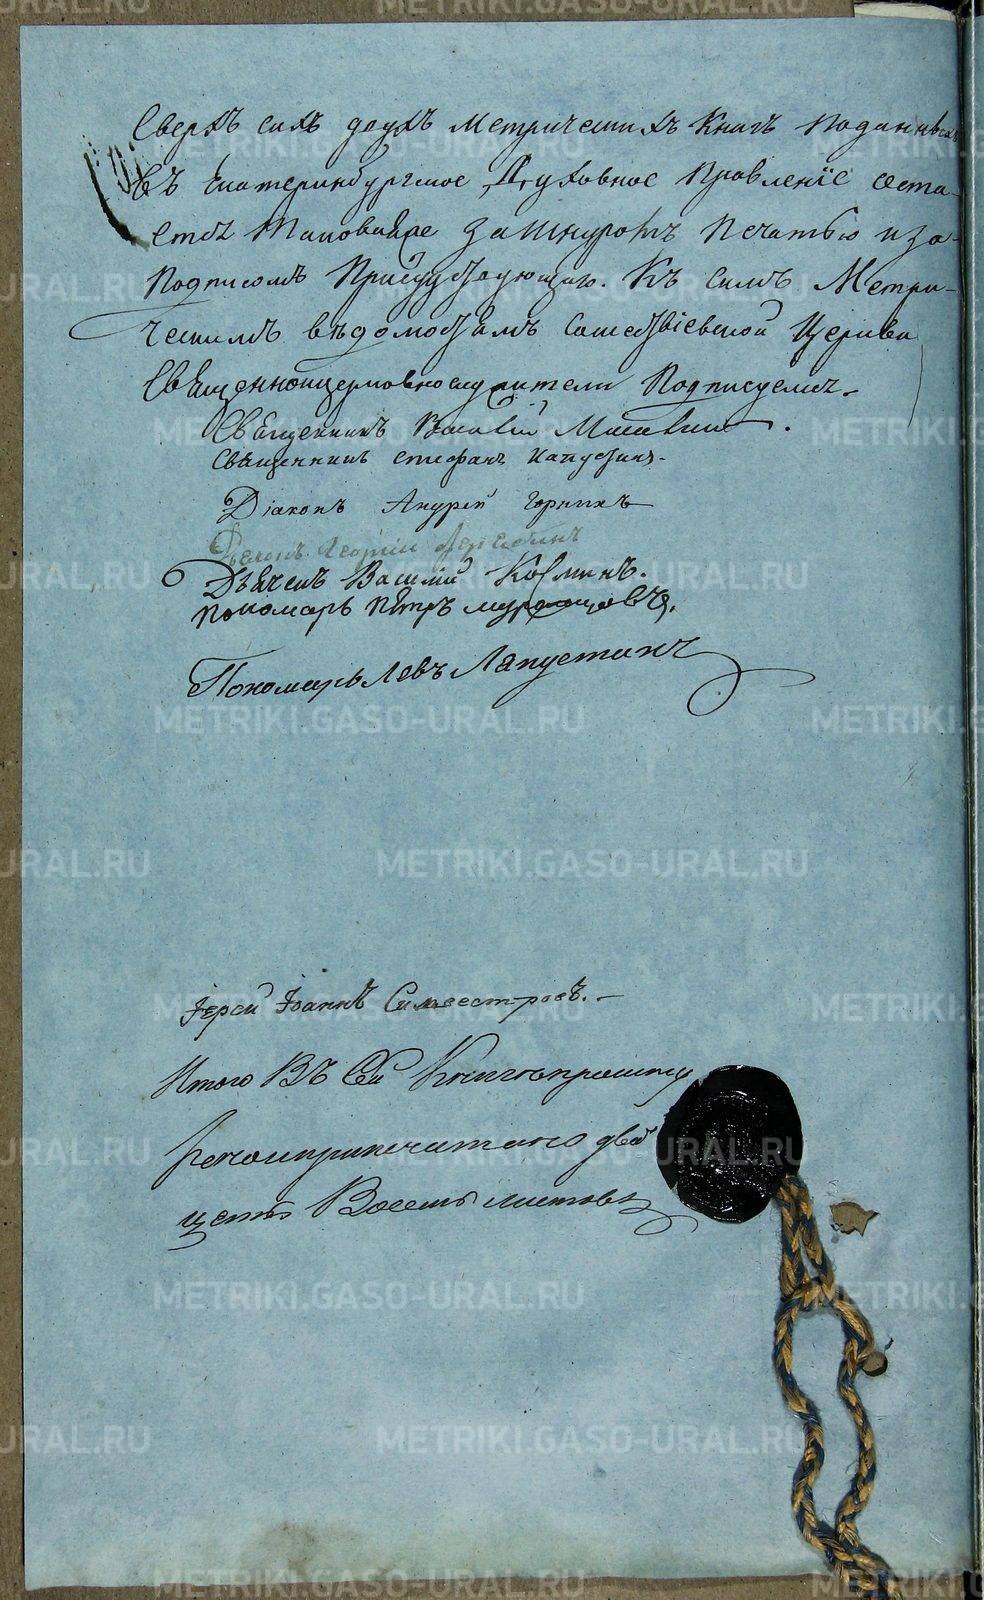 Сверхъ сихъ двухъ Метрическихъ Книгъ поданныхъ
въ Екатеринбургское Духовное Правленіе оста-
ется таковаяже за шнуромъ Печатью и за
подписомъ Присудствующаго. Къ симъ Метри-
ческимъ вѣдомостямъ Церкви
Священноицерковнослужители Подписуемся.
Священникъ Василій
Священникъ Стефанъ Капустинъ.
Діаконъ Андрей Горныхъ
Діаконъ Георгій
Дьячекъ Василій Косминъ.
пономарь Пётръ
Пономарь Левъ Лапустинъ
Іерей Іоаннъ Силвестровъ.
Итого Въ Сей Книге прошну
ренои припечатано двад
цеть Восемь листовъ
METRIKI.GASO-URAL.RU